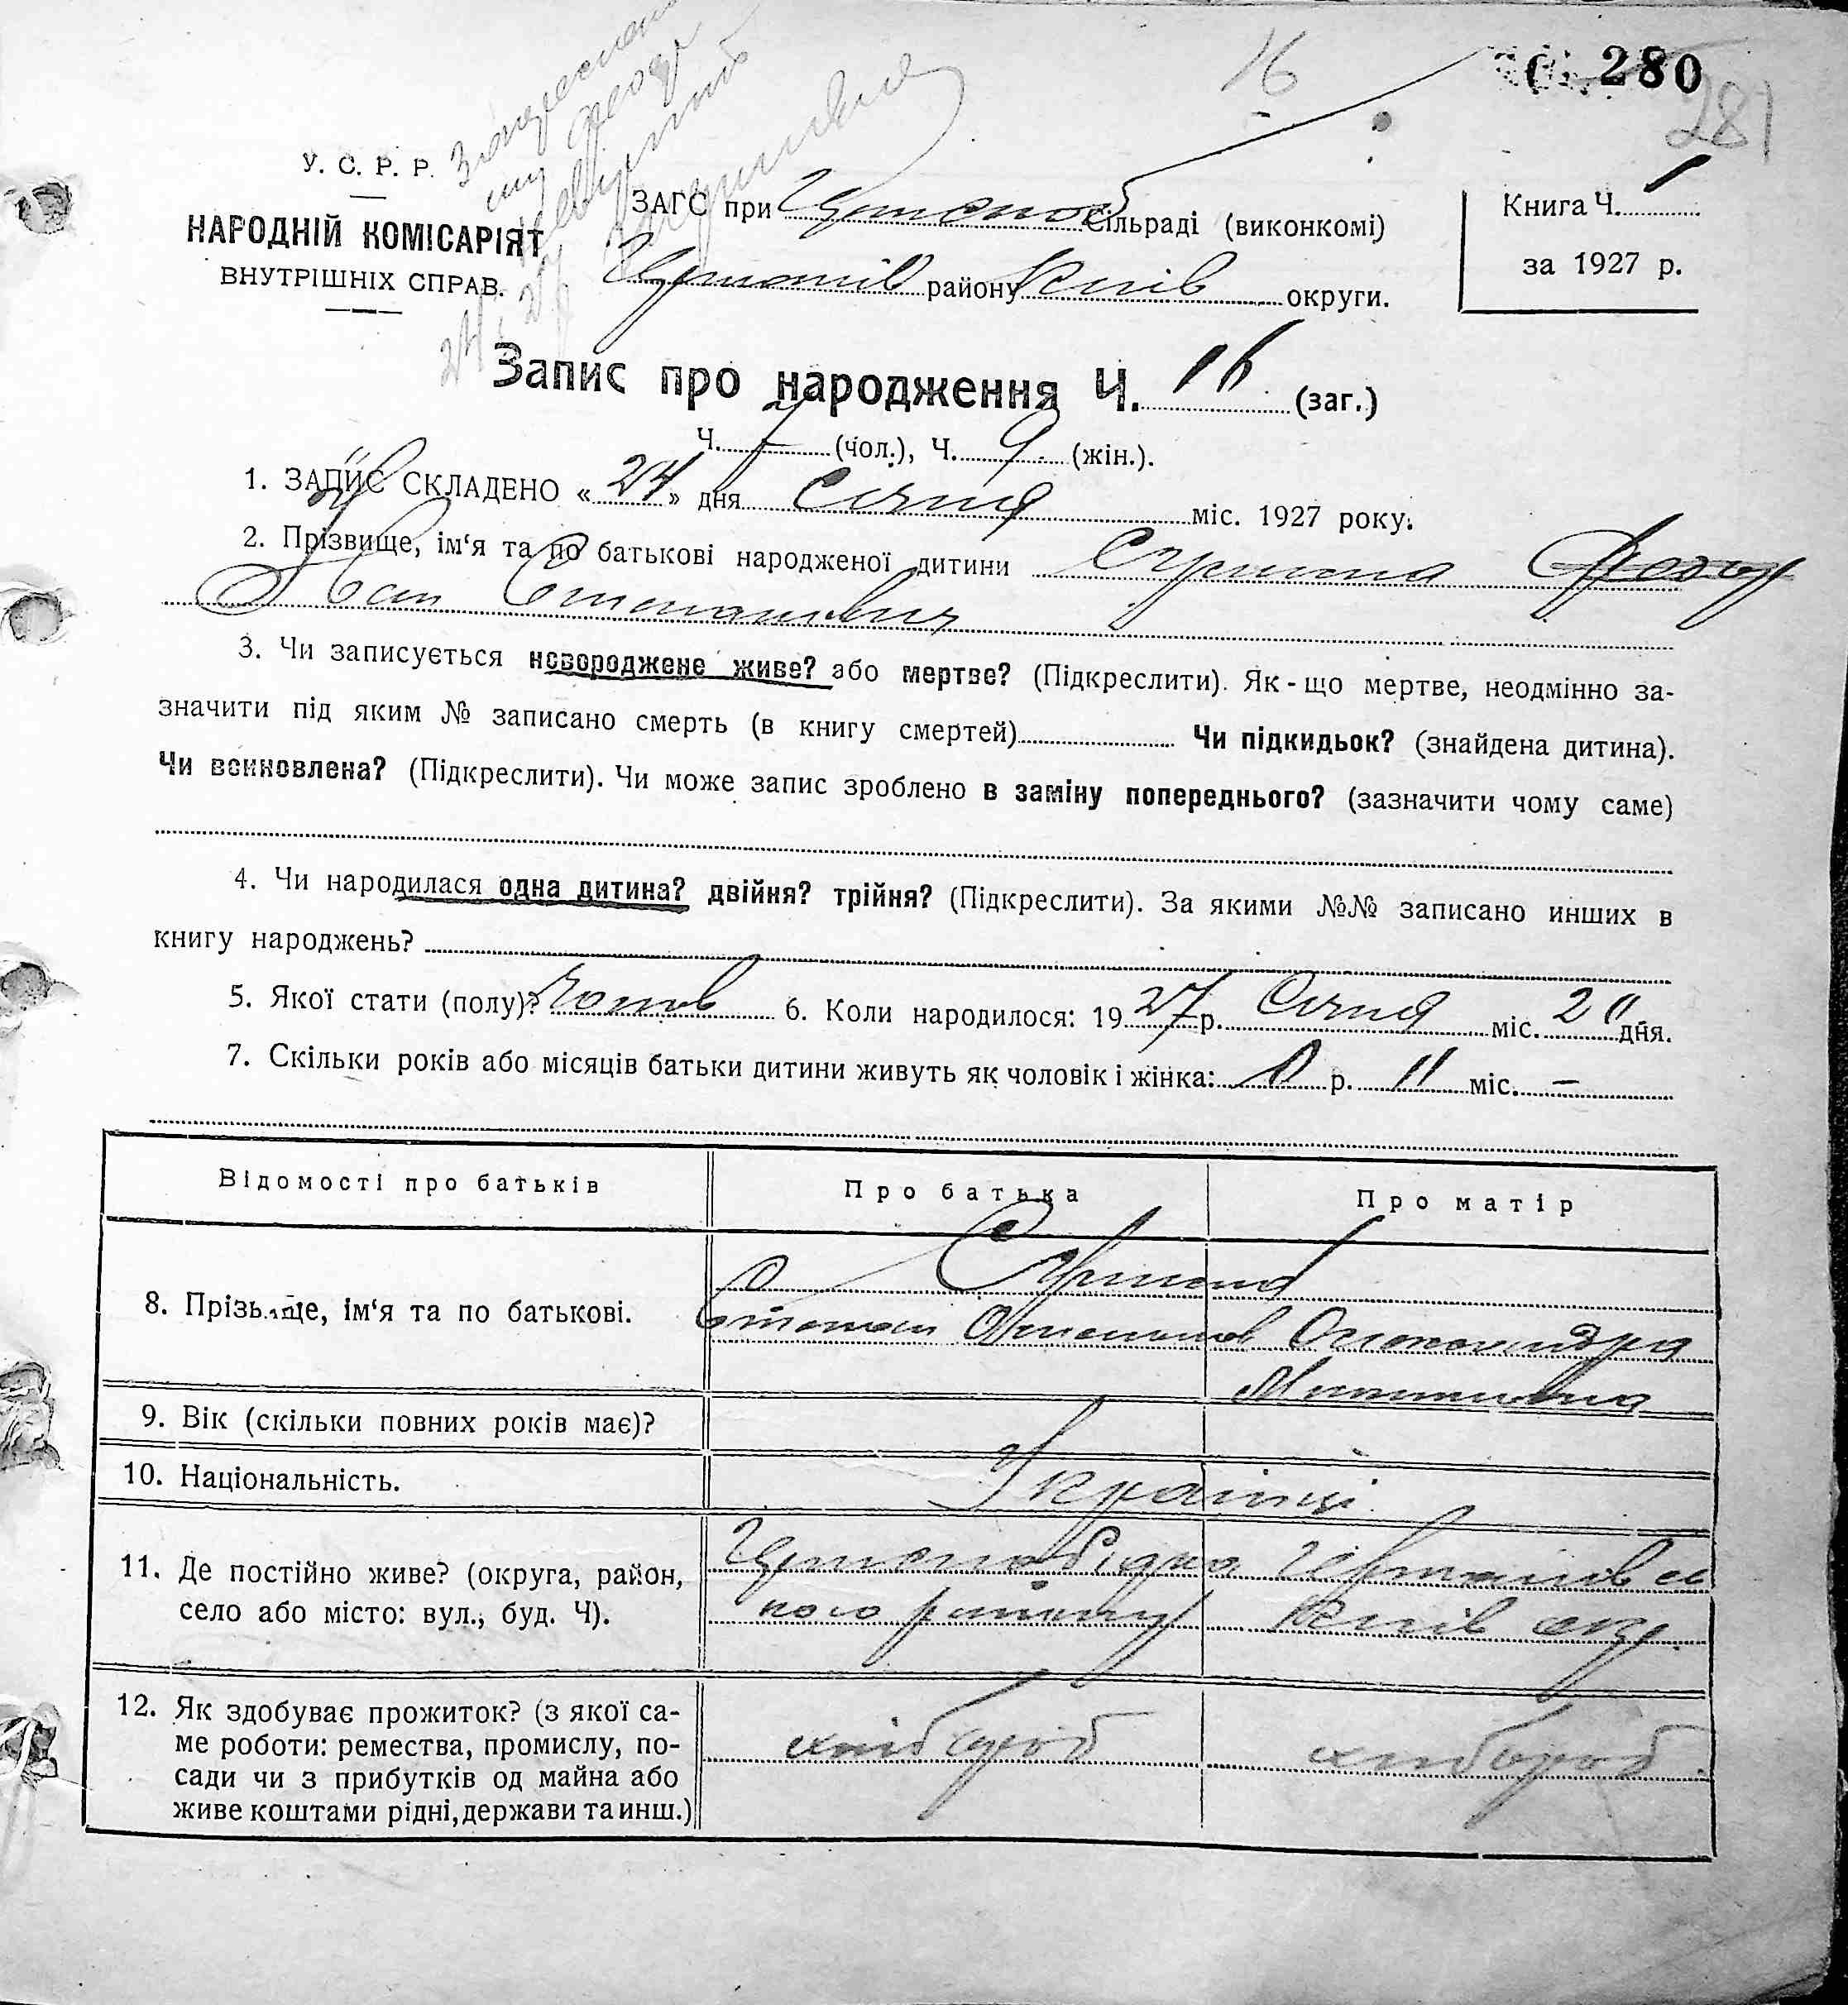 16
280
281
У. С. Р. Р.
НАРОДНІЙ КОМІСАРІЯТ
ВНУТРІШНІХ СПРАВ.
ЗАГС при сільраді (виконкомі)
району Київ округи.
Книга Ч. 1
за 1927 р.
Запис про народження Ч. 16 (заг.)
Ч. 7 (чол.), Ч. 9 (жін.).
1. ЗАПИС СКЛАДЕНО « 24 » дня Січня міс. 1927 року.
2. Прізвище, ім‘я та по батькові народженої дитини
Іван Степанович
3. Чи записується новороджене живе? або мертве? (Підкреслити). Як-що мертве, неодмінно за-
значити під яким № записано смерть (в книгу смертей) Чи підкидьок? (знайдена дитина).
Чи всиновлена? (Підкреслити). Чи може запис зроблено в заміну попереднього? (зазначити чому саме)
4. Чи народилася одна дитина? двійня? трійня? (Підкреслити). За якими №№ записано инших в
книгу народжень?
5. Якої стати (полу)? Чолов 6. Коли народилося: 19 27 р. Січня міс. 20 дня.
7. Скільки років або місяців батьки дитини живуть як чоловік і жінка: 0 р. 11 міс. –
Відомості про батьків Про батька Про матір
8. Прізвище, ім‘я та по батькові.
Степан Олександра
9. Вік (скільки повних років має)?
10. Національність. Українці
11. Де постійно живе? (округа, район,
село або місто: вул., буд. Ч).
кого району Київ окр.
12. Як здобуває прожиток? (з якої са-
ме роботи: ремества, промислу, по-
сади чи з прибутків од майна або
живе коштами рідні, держави та инш.)
хлібороб хлібороб